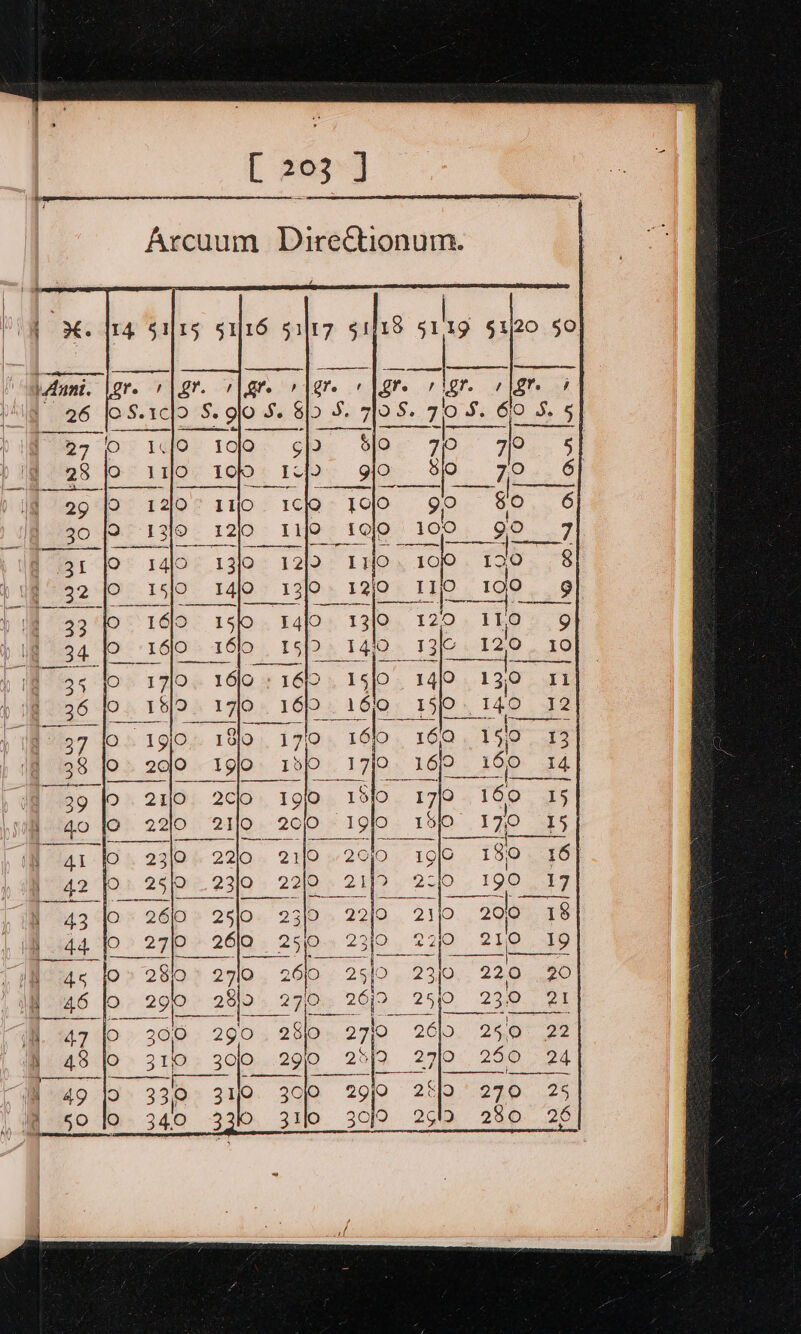 [ 203 ]
Arcuum Directionum.
♓. 14 51 15 51 16 51 17 51 18 51 19 51 20 50
Anni. gr. ′ gr. ′ gr. ′ gr. ′ gr. ′ gr. ′ gr. ′
26 0 S. 10 0 S. 9 0 S. 8 0 S. 7 0 S. 7 0 S. 6 0 S. 5
27 0 10 0 10 0 9 0 8 0 7 0 7 0 5
28 0 11 0 10 0 10 0 9 0 8 0 7 0 6
29 0 12 0 11 0 10 0 10 0 9 0 8 0 6
30 0 13 0 12 0 11 0 10 0 10 0 9 0 7
31 0 14 0 13 0 12 0 11 0 10 0 10 0 8
32 0 15 0 14 0 13 0 12 0 11 0 10 0 9
33 0 16 0 15 0 14 0 13 0 12 0 11 0 9
34 0 16 0 16 0 15 0 14 0 13 0 12 0 10
35 0 17 0 16 0 16 0 15 0 14 0 13 0 11
36 0 18 0 17 0 16 0 16 0 15 0 14 0 12
37 0 19 0 18 0 17 0 16 0 16 0 15 0 13
38 0 20 0 19 0 18 0 17 0 16 0 16 0 14
39 0 21 0 20 0 19 0 18 0 17 0 16 0 15
40 0 22 0 21 0 20 0 19 0 18 0 17 0 15
41 0 23 0 22 0 21 0 20 0 19 0 18 0 16
42 0 25 0 23 0 22 0 21 0 20 0 19 0 17
43 0 26 0 25 0 23 0 22 0 21 0 20 0 18
44 0 27 0 26 0 25 0 23 0 22 0 21 0 19
45 0 28 0 27 0 26 0 25 0 23 0 22 0 20
46 0 29 0 28 0 27 0 26 0 25 0 23 0 21
47 0 30 0 29 0 28 0 27 0 26 0 25 0 22
48 0 31 0 30 0 29 0 28 0 27 0 26 0 24
49 0 33 0 31 0 30 0 29 0 28 0 27 0 25
50 0 34 0 33 0 31 0 30 0 29 0 28 0 26